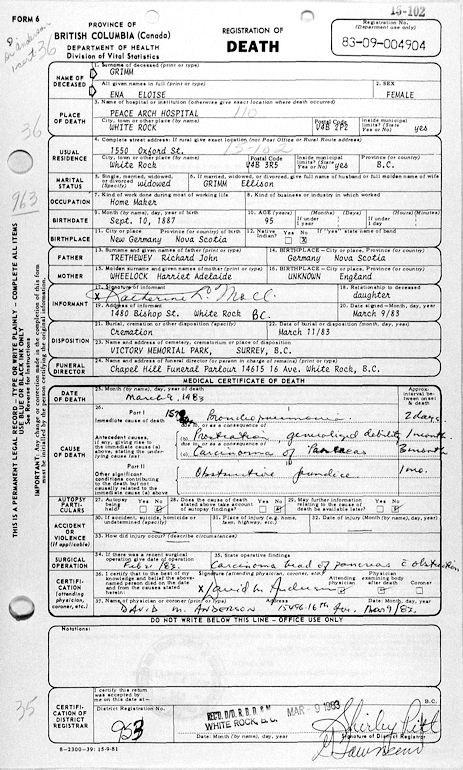 FORM 6
15-102
PROVINCE OF
BRITISH COLUMBIA (Canada)
DEPARTMENT OF HEALTH
Division of Vital Statistics
REGISTRATION OF
DEATH
Registration No.
(Department use only)
83-09-004904
36
NAME OF DECEASED
1. Surname of deceased (print or type)
GRIMM
All given names in full (print or type)
ENA ELOISE
2. SEX
FEMALE
PLACE OF DEATH
3. Name of hospital or institution (otherwise give exact location where death occurred)
PEACE ARCH HOSPITAL
110
City, town or other place (by name)
WHITE ROCK
Postal Code
V4B 2P2
Inside municipal limits? (State Yes or No)
yes
36
USUAL RESIDENCE
4. Complete street address: If rural give exact location (not Post Office or Rural Route address)
1550 Oxford St.
15-102
City, town or other place (by name)
White Rock
Postal Code
V4B 3R5
Inside municipal limits? (State Yes or No)
yes
Province (or country)
B.C.
MARITAL STATUS
5. Single, married, widowed, or divorced (Specify)
widowed
6. If married, widowed, or divorced, give full name of husband or full maiden name of wife
GRIMM Ellison
963
OCCUPATION
7. Kind of work done during most of working life
Home Maker
8. Kind of business or industry in which worked
BIRTHDATE
9. Month (by name), day, year of birth
Sept. 10, 1887
10. AGE (years)
95
(Months) (Days)
If under 1 year
(Hours) (Minutes)
If under 1 day
BIRTHPLACE
11. City or place Province (or country) of birth
New Germany Nova Scotia
12. Native Indian?
Yes No
X
If "yes" state name of band
FATHER
13. Surname and given names of father (print or type)
TRETHEWEY Richard John
14. BIRTHPLACE - City or place, Province (or country)
Germany Nova Scotia
MOTHER
15. Maiden surname and given names of mother (print or type)
WHEELOCK Harriet Adelaide
16. BIRTHPLACE - City or place, Province (or country)
UNKNOWN England
INFORMANT
17. Signature of informant
X Katherine
18. Relationship to deceased
daughter
19. Address of informant
1480 Bishop St. White Rock BC.
20. Date signed - Month, day, year
March 9/83
DISPOSITION
21. Burial, cremation or other disposition (specify)
Cremation
22. Date of burial or disposition (month, day, year)
March 11/83
23. Name and address of cemetery, crematorium or place of disposition
VICTORY MEMORIAL PARK, SURREY, B.C.
FUNERAL DIRECTOR
24. Name and address of funeral director (or person in charge of remains) (print or type)
Chapel Hill Funeral Parlour 14615 16 Ave. White Rock, B.C.
MEDICAL CERTIFICATE OF DEATH
DATE OF DEATH
25. Month (by name), day, year of death
March 9, 1983
Approx. interval between onset & death
CAUSE OF DEATH
26. Part I
Immediate cause of death
(a) Bronchopneumonia
2 days
due to, or as a consequence of
Antecedent causes, if any, giving rise to the immediate cause (a) above, stating the underlying cause last
(b) Prostration, generalized debility
1 month
due to, or as a consequence of
(c) Carcinoma of Pancreas
3 month
Part II
Other significant conditions contributing to the death but not causally related to the immediate cause (a) above
Obstructive jaundice
1 mo.
AUTOPSY PARTICULARS
27. Autopsy being held?
Yes No
28. Does the cause of death stated above take account of autopsy findings?
Yes No
29. May further information relating to the cause of death be available later?
Yes No
ACCIDENT OR VIOLENCE
(if applicable)
30. If accident, suicide, homicide or undetermined (specify)
31. Place of injury (e.g. home, farm, highway, etc.)
32. Date of injury (Month (by name), day, year)
33. How did injury occur? (describe circumstances)
SURGICAL OPERATION
34. If there was a recent surgical operation give date of operation
Feb 21/83.
35. State operative findings
Carcinoma head of pancreas c obstruction
CERTIFICATION
(attending physician, coroner, etc.)
36. I certify that to the best of my knowledge and belief the above-named person died on the date and from the causes stated herein:
Signature (attending physician, coroner, etc.)
X David M. Anderson
Attending physician
Physician examining body after death
Coroner
37. Name of physician or coroner (print or type)
DAVID M. ANDERSON
Address
15496 16th Ave.
Date: Month, day, year
Mar 9/83.
DO NOT WRITE BELOW THIS LINE - OFFICE USE ONLY
Notations:
35
CERTIFICATION OF DISTRICT REGISTRAR
I certify this return was accepted by me on this date at -
B.C.
District Registration No.
953
REC'D. D/O. R. B. D. & M
WHITE ROCK, B.C.
MAR - 9 1983
Date: Month (by name), day, year
Shirley Pitt
Signature of District Registrar
Townsend
8-2300-39: 15-9-81
THIS IS A PERMANENT LEGAL RECORD - TYPE OR WRITE PLAINLY - COMPLETE ALL ITEMS
USE BLUE OR BLACK INK ONLY
See Reverse for Instructions
IMPORTANT: Any change or correction made in the completion of this form must be initialled by the person certifying the original information.